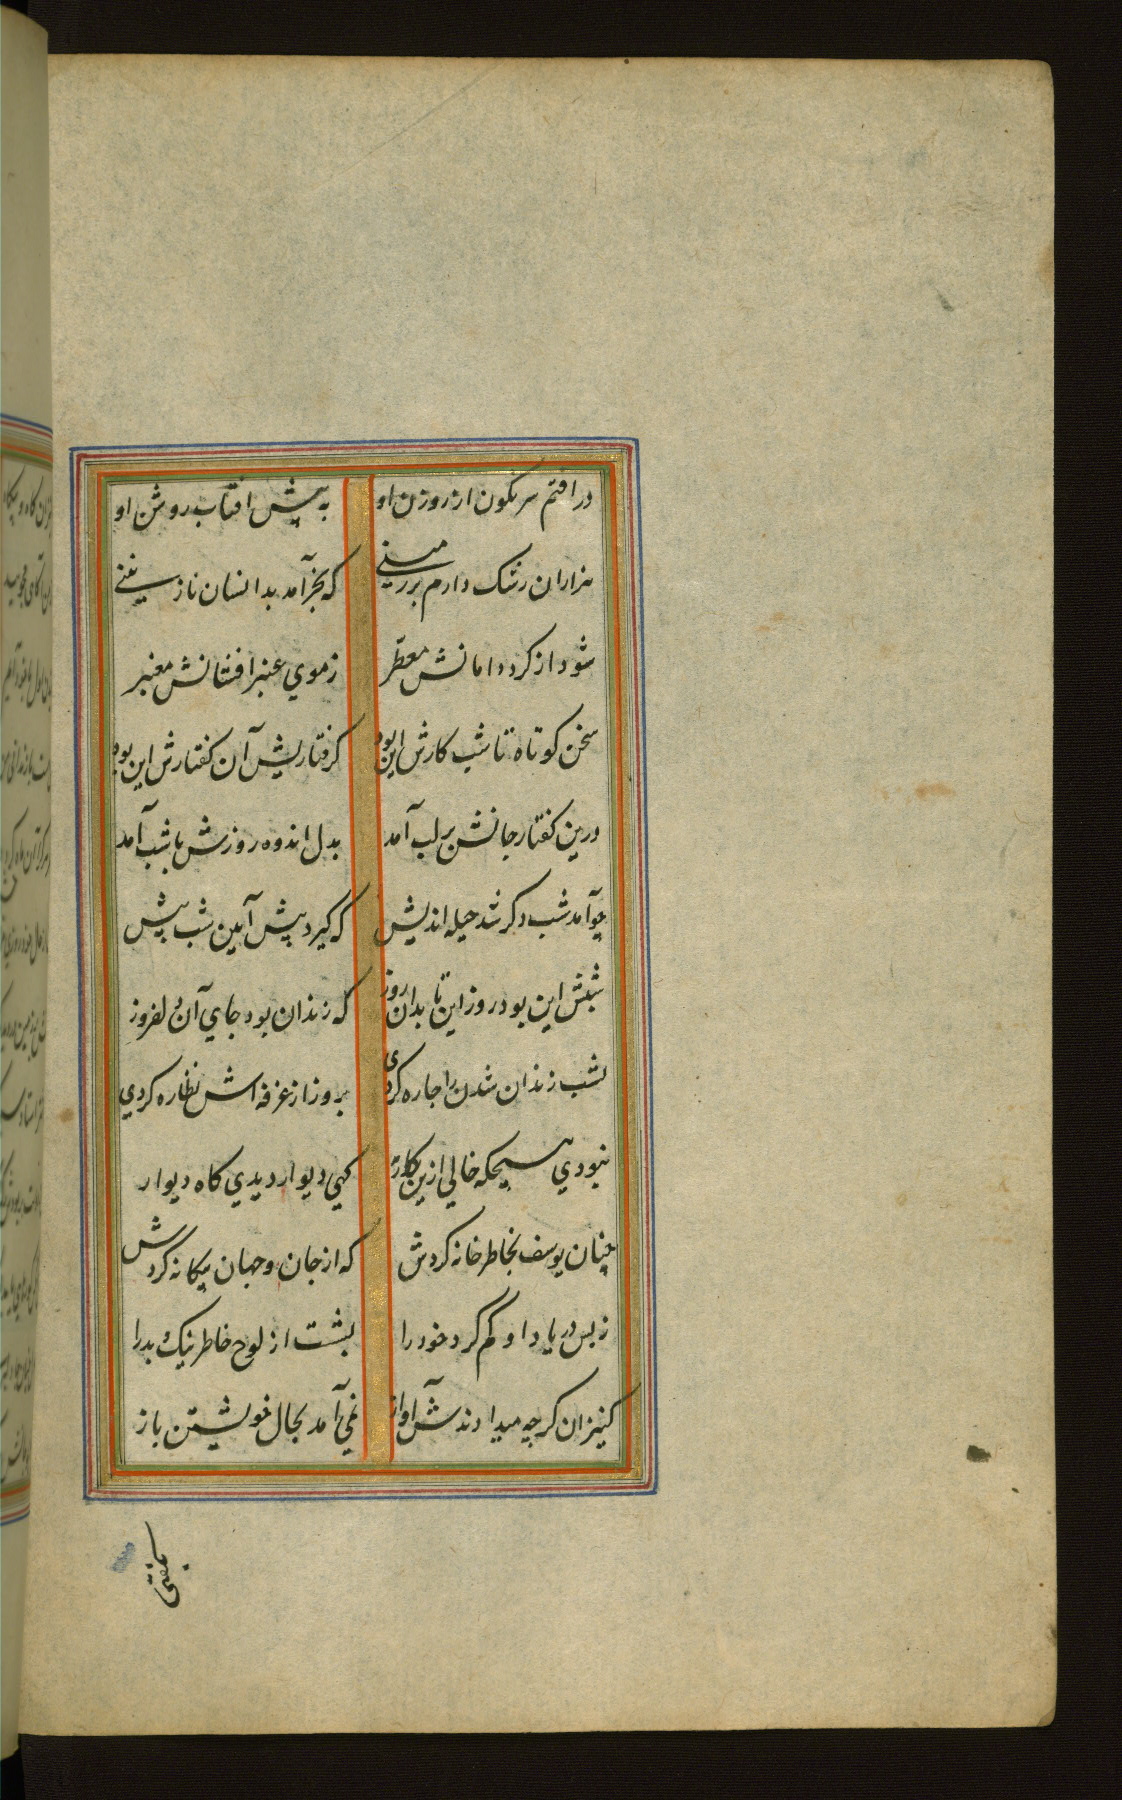 در افتم سرنگون از روزن او به پیش افتاب روشن او
هزاران رشک دارم بر زمینی که بخرآمد بدانسان نازنینی
شود از کرد دامانش معطّر ز موي عنبر افشانش معنبر
سخن کوتاه تا شب کارش این بود کرفتاریش آن کفتارش این بود
درین کفتار جانش بر لب آمد بدل اندوه روزش با شب آمد
چو آمد شب دکر شد حیله اندیش که کیرد پیش آیین شب پیش
شبش این بود روز این تا بدان روز که زندان بود جاي آن دلفروز
بشب زندان شدن را چاره کردی بروز از غرفه اش نظاره کردي
نبودي هیچکه خالي ازین کار کهي دیوار دیدي کاه دیوار
چنان یوسف بخاطر خانه کردش که از جان و جهان بیکانه کردش
ز بس در یاد او کم کرد خود را بشست از لوح خاطر نیک و بد را
کنیزان کرچه میدادندش آواز نمي آمد بحال خویشتن باز
بکفتی